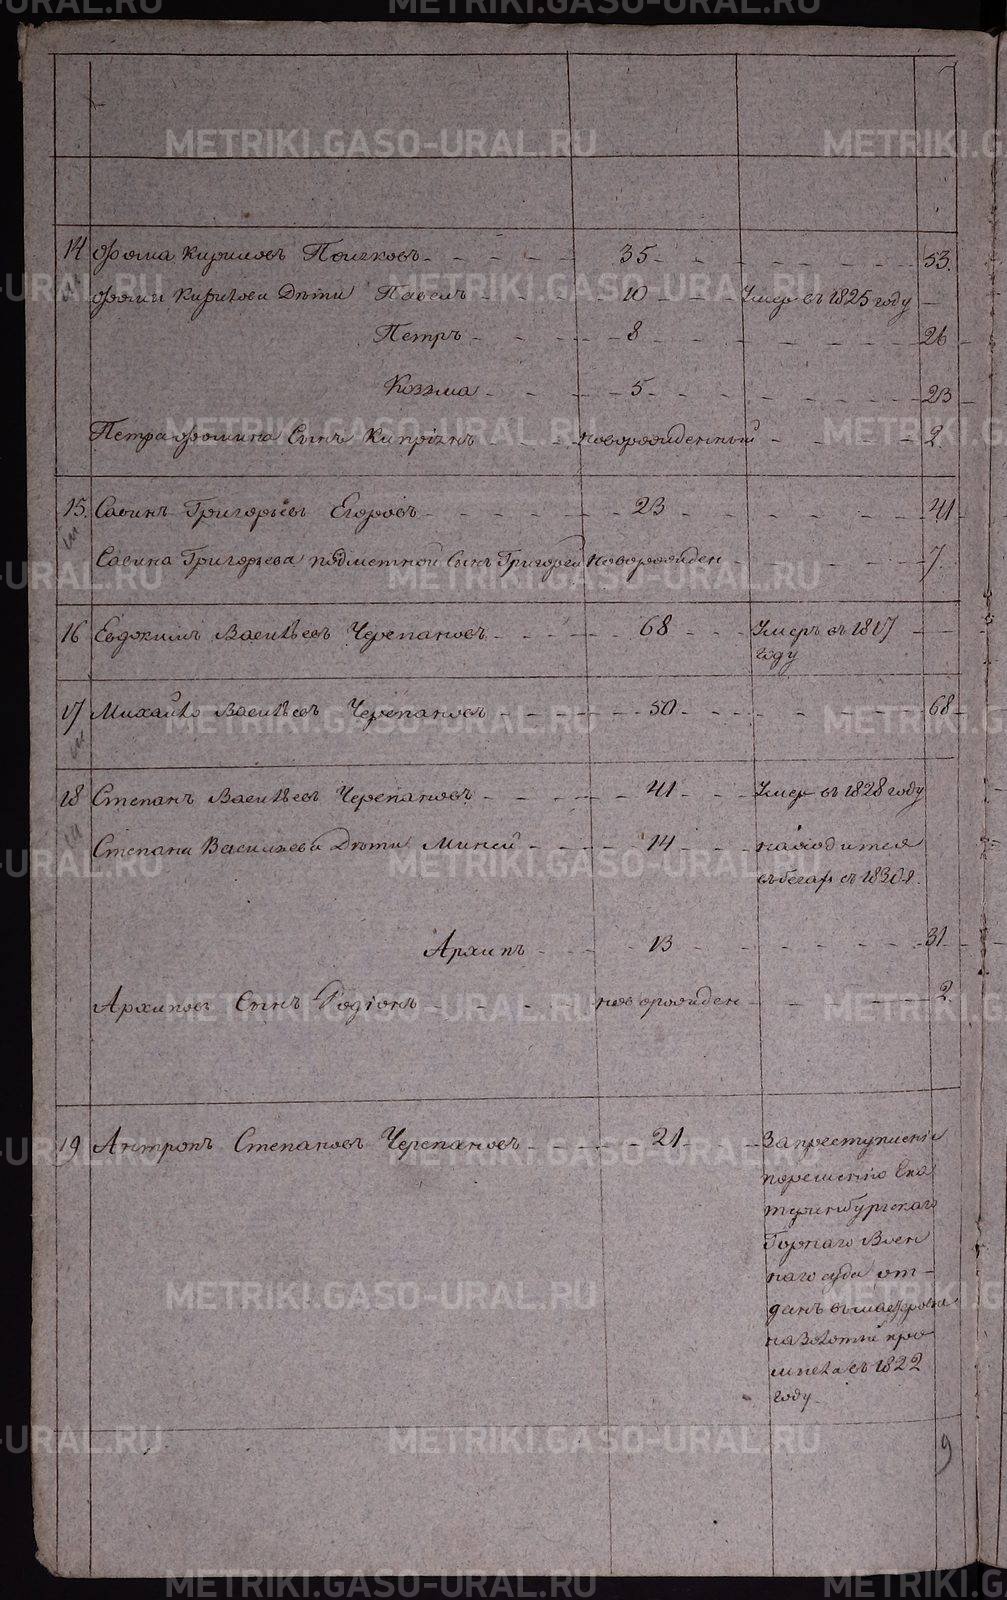 METRIKI.GASO-URAL.RU
14 Фома Кириловъ Пошковъ 35 53.
Фомы Кирилова Дѣти Павелъ 10 Умеръ въ 1825 году
Петръ 8 26
Козма 5 23
Петра Фомина Сынъ Кипріянъ новорожденный 2
15. Савинъ Григорьевъ Егоровъ 23 41
Савина Григорьева подметной Сынъ Григорей новорожден 7.
16 Евдокимъ Васильевъ Черепановъ 68 Умеръ въ 1817
году
17 Михайло Васильевъ Черепановъ 50 68
18 Степанъ Васильевъ Черепановъ 41 Умеръ въ 1828 году
Степана Васильева Дѣти Миней 14 находится
въ бегах с 1830 г.
Архипъ 13 31
Архиповъ Сынъ Родіонъ новорожден 2
19 Антропъ Степановъ Черепановъ 21 За преступленіе
порешенію Ека
теринбургскаго
Горнаго Воен
наго суда от-
данъ
на Золотые про
мысла съ 1822
году
9